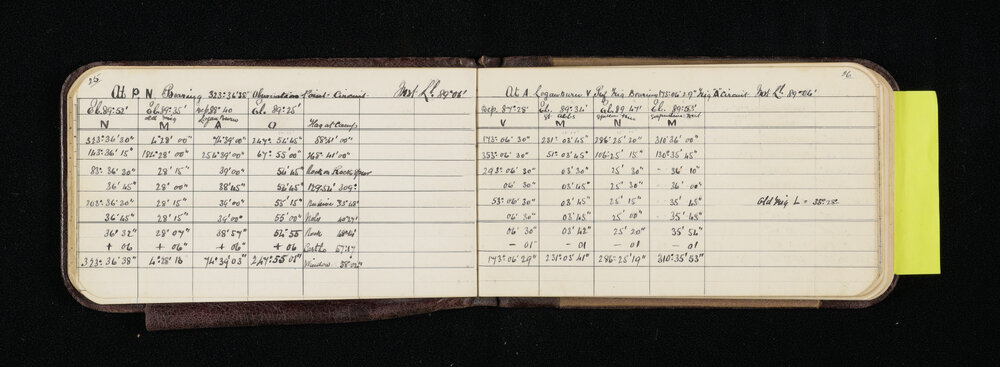 25
At P N. Bearing 323°36'38" Observation Point Circuit Vert L 89°06'
El. 89:52' El. 89:35' Dep 88:40 El. 89:25'
old trig
N M A O Flag at Camp
323°36'30" 4°28'00" 74°39'00" 247°54'45" 88°41'00"
143°36'15" 184°28'00" 254°39'00" 67°55'00" 268°41'00"
83°36'30" 28'15" 39'00" 54'45"
36'45" 28'00" 38'45" 54'45"
203°36'30" 28'15" 39'00" 55'15"
36'45" 28'15" 39'00" 55'00"
36'32" 28'07" 38'57" 54'55 Rock
+ 06 + 06" + 06" + 06 Castle
323°36'38" 4°28'16 74°39'03" 247°55'01" Window 38°02'
26.
At A. Bearing 173:06'29" Trig A Circuit Vert L 89:06'
Dep. 87:28 El. 89:34' El. 89.47' El. 89:55'
St Abbs
V M N M
173°06'30" 231°03'45" 286°25'20" 310°36'00"
353°06'30" 51°03'45" 106°25'15" 130°35'45"
293°06'30 03'30" 25'30 36'10"
06'30 03'45" 25'30" 36'00"
53°06'30 03'45" 25'15" 35'45" Old Trig L = 35:28
06'30 03'45" 25'00" 35'45"
06'30 03'42" 25'20" 35'54"
- 01 - 01 - 01 - 01
173°06'29" 231°03'41" 286°25'19" 310°35'53"